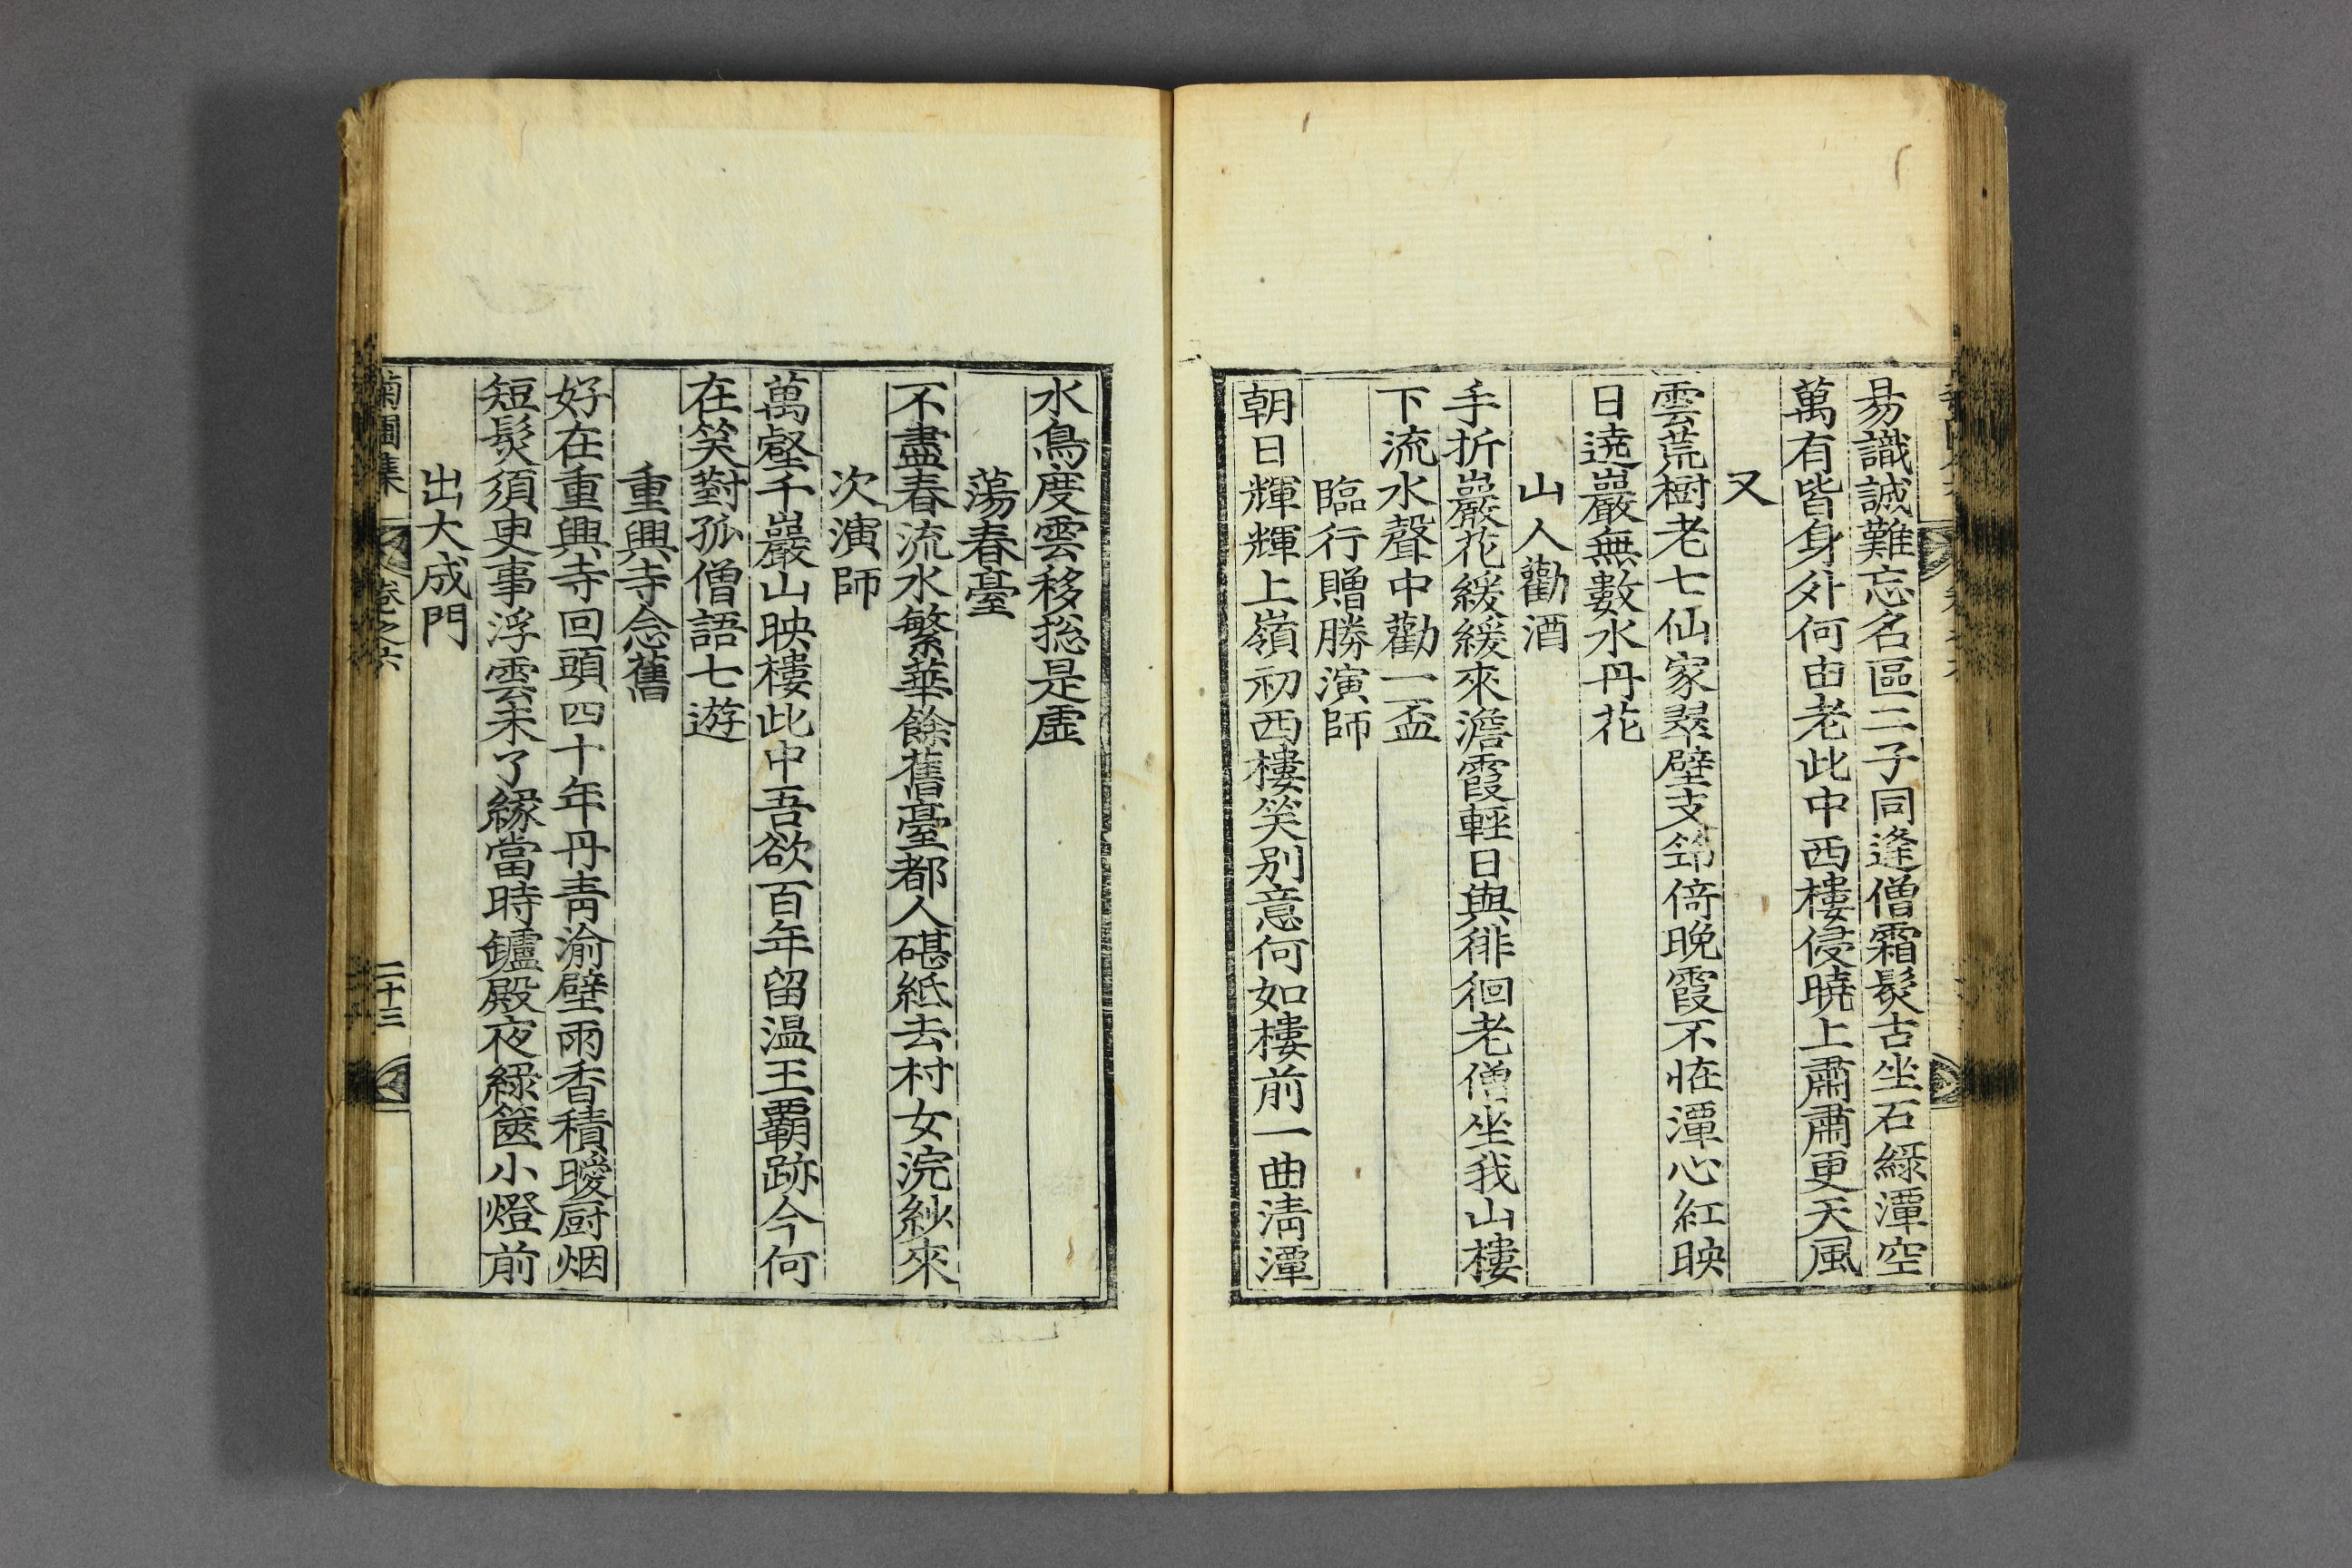 易識誠難忘名區二子同逢僧霜鬂古坐石綠潭空
萬有皆身外何由老此中西樓侵曉上肅肅更天風
又
雲荒樹老七仙家翠壁支筇倚晚霞不恠潭心紅映
日遶巖無數水丹花
山人勸酒
手折巖花緩緩來澹霞輕日與徘徊老僧坐我山樓
下流水聲中勸一盃
臨行贈勝演師
朝日輝輝上嶺初西樓笑別意何如樓前一曲淸潭
水鳥度雲移摠是虛
蕩春臺
不盡春流水繁華餘舊臺都人碪紙去村女浣紗來
次演師
萬壑千巖山映樓此中吾欲百年留温王覇跡今何
在笑對孤僧語七遊
重興寺念舊
好在重興寺回頭四十年丹靑渝壁雨香積曖厨烟
短鬂須臾事浮雲未了緣當時鑪殿夜綠篋小燈前
出大成門
菊圃集
卷之六
二十三